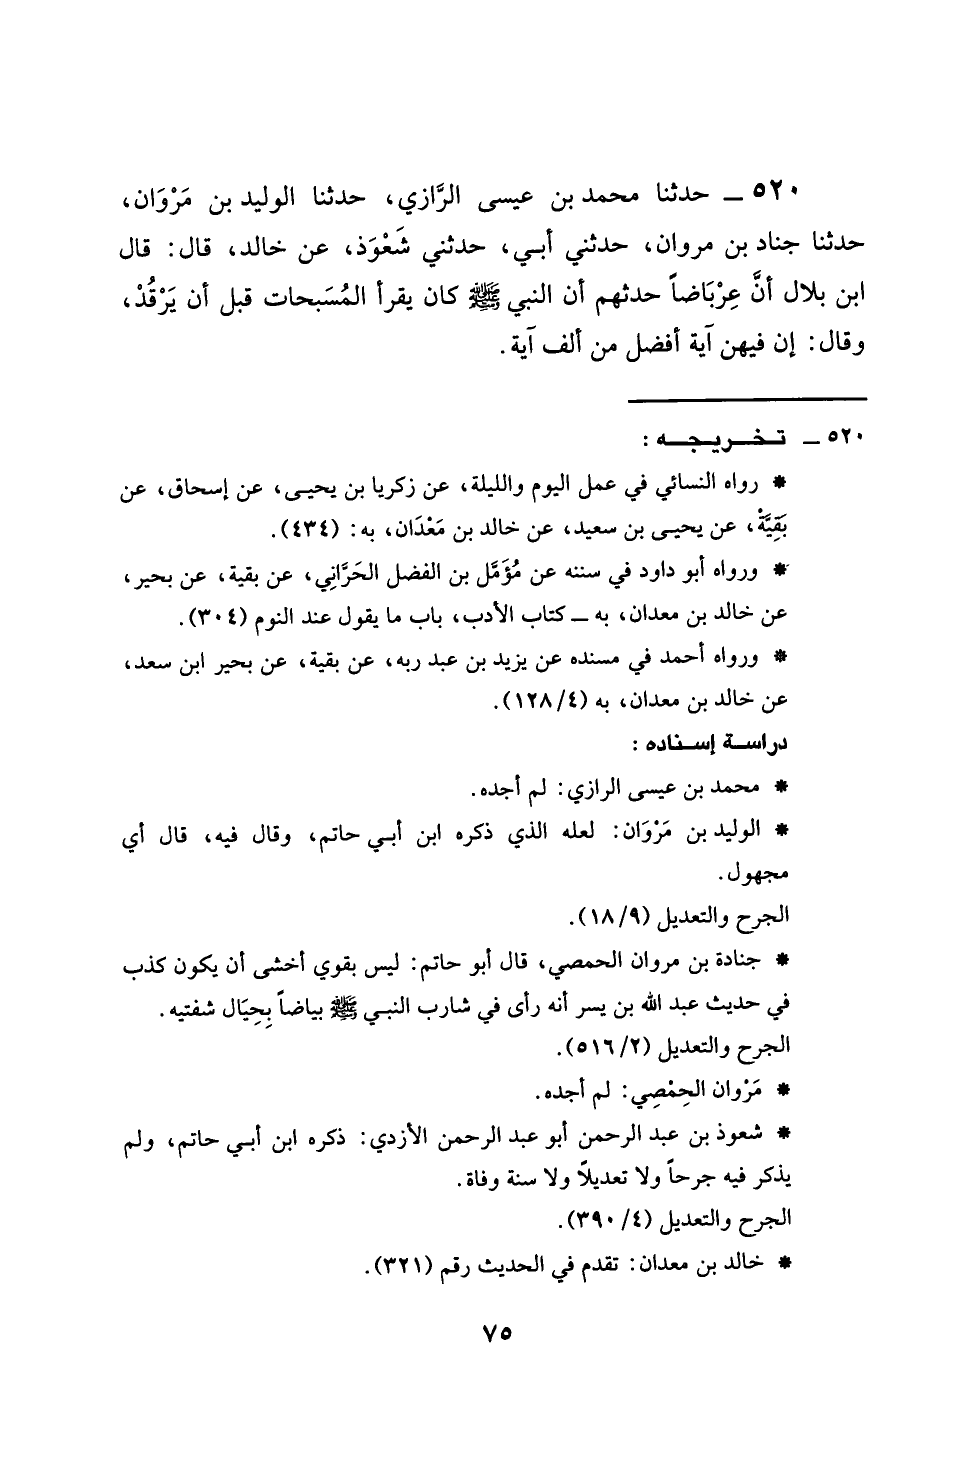 ٥٢٠ ــ حدثنا محمد بن عيسى الرَّازي، حدثنا الوليد بن مَرْوَان،
حدثنا جناد بن مروان، حدثني أبي، حدثني شَعْوَذ، عن خالد، قال: قال
ابن بلال أنَّ عِرْبَاضاً حدثهم أن النبي ﷺ كان يقرأ المُسَبحات قبل أن يَرْقُدْ،
وقال: إن فيهن آية أفضل من ألف آية.
٥٢٠ ــ تخريجه:
* رواه النسائي في عمل اليوم والليلة، عن زكريا بن يحيى، عن إسحاق، عن
بَقِيَّةْ، عن يحيى بن سعيد، عن خالد بن مَعْدَان، به: (٤٣٤).
* ورواه أبو داود في سننه عن مُؤَمَّل بن الفضل الحَرَّانِي، عن بقية، عن بحير،
عن خالد بن معدان، به ــ كتاب الأدب، باب ما يقول عند النوم (٣٠٤).
* ورواه أحمد في مسنده عن يزيد بن عبد ربه، عن بقية، عن بحير ابن سعد،
عن خالد بن معدان، به (١٢٨/٤).
دراسة إسناده:
* محمد بن عيسى الرازي: لم أجده.
* الوليد بن مَرْوَان: لعله الذي ذكره ابن أبي حاتم، وقال فيه، قال أي
مجهول.
الجرح والتعديل (١٨/٩).
* جنادة بن مروان الحمصي، قال أبو حاتم: ليس بقوي أخشى أن يكون كذب
في حديث عبد الله بن يسر أنه رأى في شارب النبي ﷺ بياضاً بِحِيَال شفتيه.
الجرح والتعديل (٥١٦/٢).
* مَرْوان الحِمْصِي: لم أجده.
* شعوذ بن عبد الرحمن أبو عبد الرحمن الأزدي: ذكره ابن أبي حاتم، ولم
يذكر فيه جرحاً ولا تعديلاً ولا سنة وفاة.
الجرح والتعديل (٣٩٠/٤).
* خالد بن معدان: تقدم في الحديث رقم (٣٢١).
٧٥